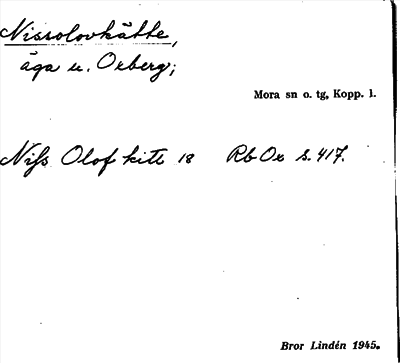 Nissolovkätte,
äga u. Oxberg;
Mora sn o. tg, Kopp. l.
Nifs Olof kitt 18 Rb Ox s. 417.
Bror Lindén 1945.